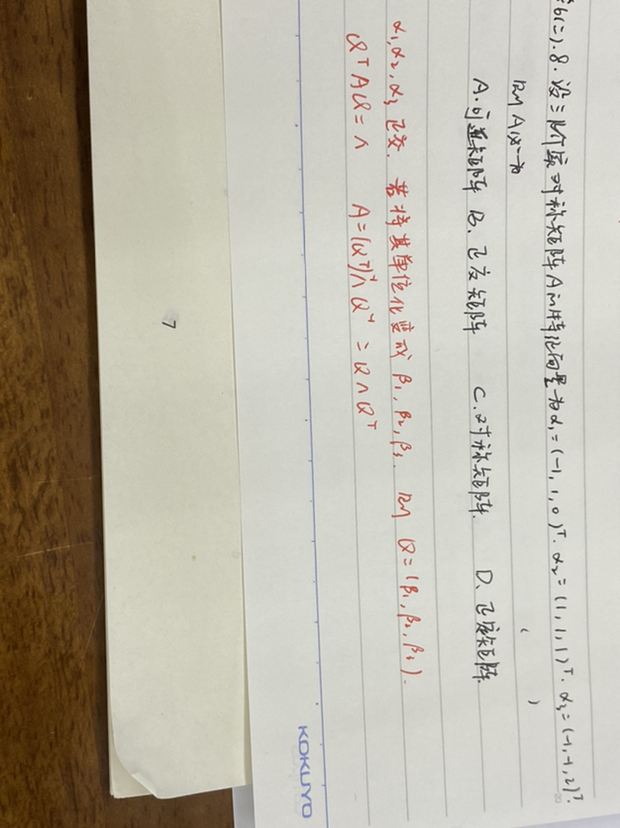 b(二).8. 设三阶实对称矩阵A的特征向量为α₁=(-1,1,0)ᵀ. α₂=(1,1,1)ᵀ. α₃=(-1,-1,2)ᵀ.
则A必为 ( )
A.可逆矩阵 B.正交矩阵 C.对称矩阵. D.正定矩阵.
α₁,α₂,α₃正交. 若将其单位化变成β₁,β₂,β₃. 则Q=(β₁,β₂,β₃).
QᵀAQ=Λ A=(Qᵀ)⁻¹ΛQ⁻¹=QΛQᵀ
KOKUYO
7